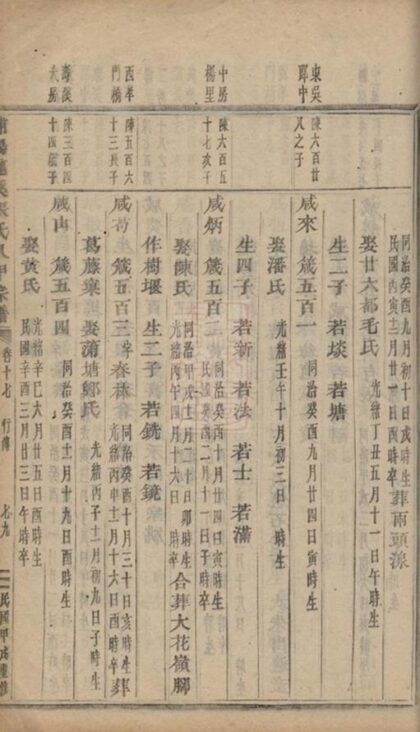 同治 年 初十日戌時生
民國丙寅三月廿一日酉時卒 葬雨頭源
娶廿六都毛氏 光緒丁丑五月十一日午時生
生二子 若埮 若塘
東吳 陳六百廿
郎中 又之子
咸來 箴五百一 同治癸酉九月廿四日寅時生
娶潘氏 光緒壬午十月初三日 時生
生四子 若新 若法 若士 若滿
中房 陳六百五
楊里 十七次子
咸炳 箴五百二 同治癸酉十月廿四日寅時生
民國 二月十一日子時卒
娶陳氏 同治甲戌十二月二十日卯時生
光緒丙午四月十六日 時卒 合葬大花嶺腳
作樹堰 生二子 若銑 若鏡
西岸 陳五百六
門橋 十三長子
咸苟 箴五百三 字春林 同治癸酉十月三十日亥時生
光緒丙申十二月十六日酉時卒 葬
葛藤寨 娶蒲塘鄭氏 光緒丙子十一月初九日子時生
陳三百四
十四 子
咸由 箴五百四 同治癸酉十二月十九日酉時生
娶黃氏 光緒辛巳六月廿五日酉時生
民國辛酉三月廿三日午時卒
張氏 宗譜 卷十七 行傳 七九 民國甲戌重修